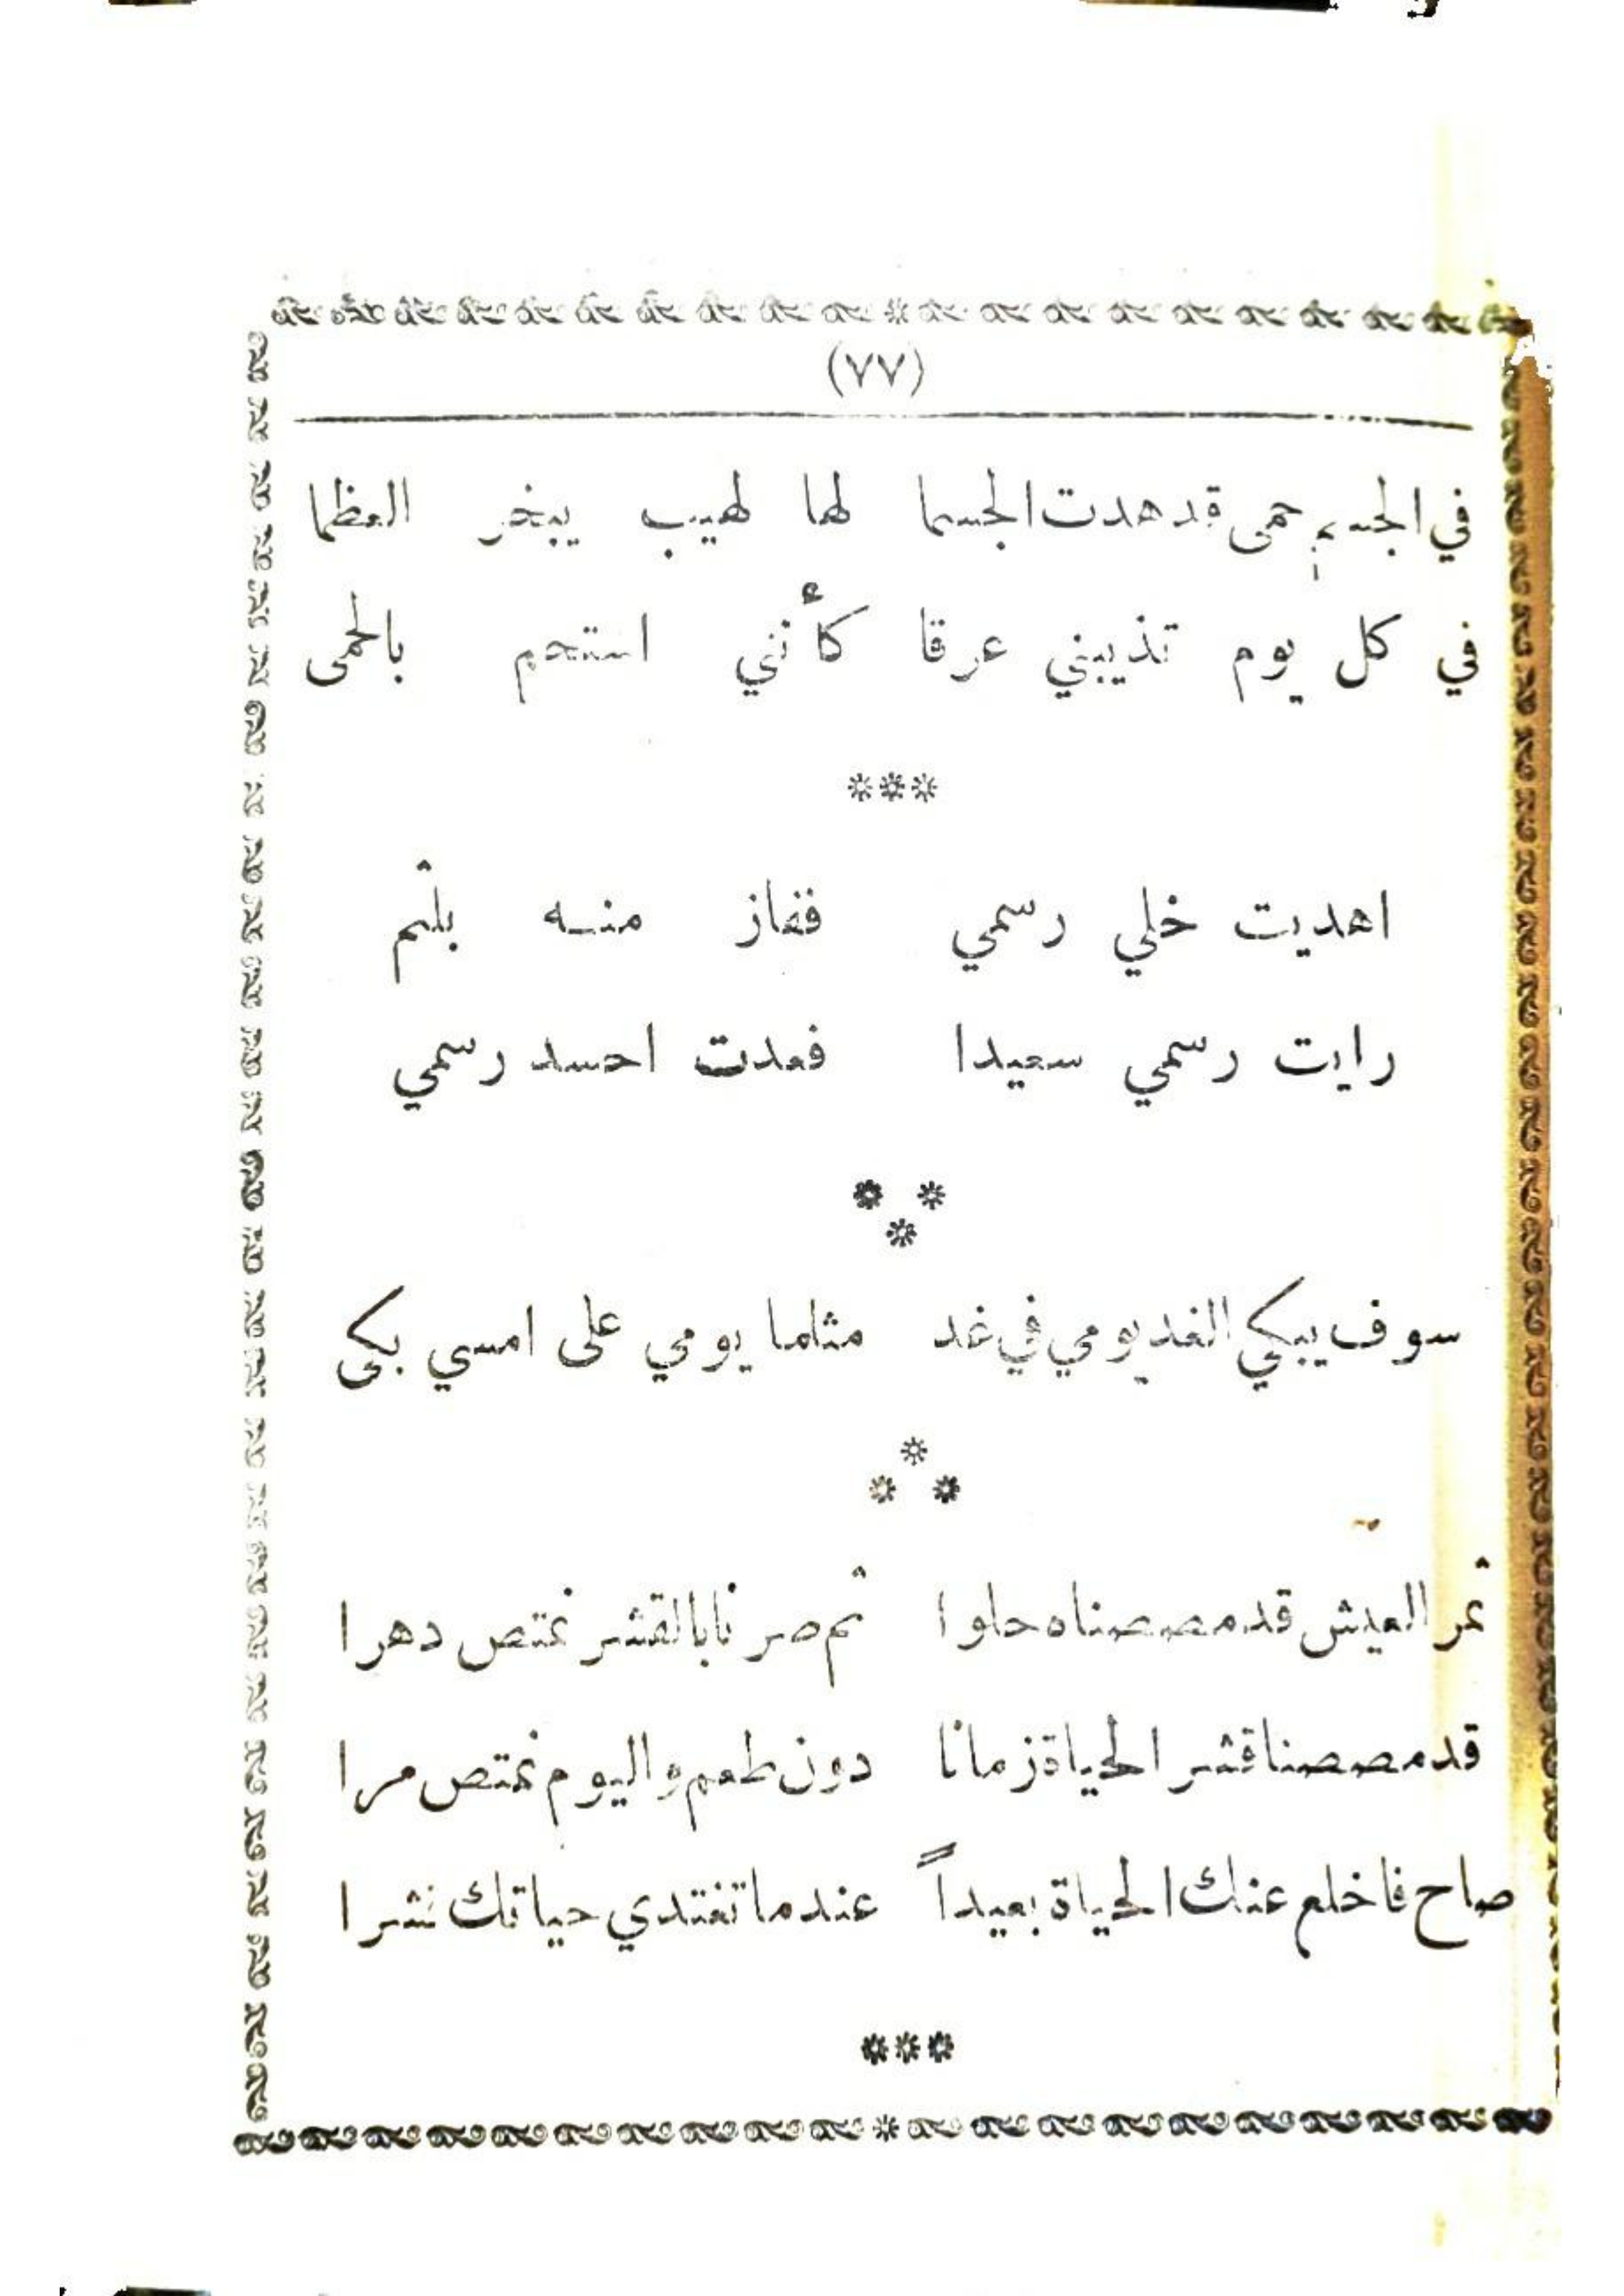 (٧٧)
في الجسم حمى قد هدت الجسما لها لهيب يبخر العظما
في كل يوم تذيبني عرقا كأنني استحم بالحمى
***
اهديت خلي رسمي ففاز منه بلثم
رايت رسمي سعيدا فعدت احسد رسمي
* *
*
سوف يبكي الغد يومي في غد مثلما يومي على امسي بكى
*
* *
ثمر العيش قد مصصناه حلوا ثم صرنا بالقشر نمتص دهرا
قد مصصنا قشر الحياة زمانا دون طعم واليوم نمتص مرا
صاح فاخلع عنك الحياة بعيداً عندما تغتدي حياتك نشرا
***